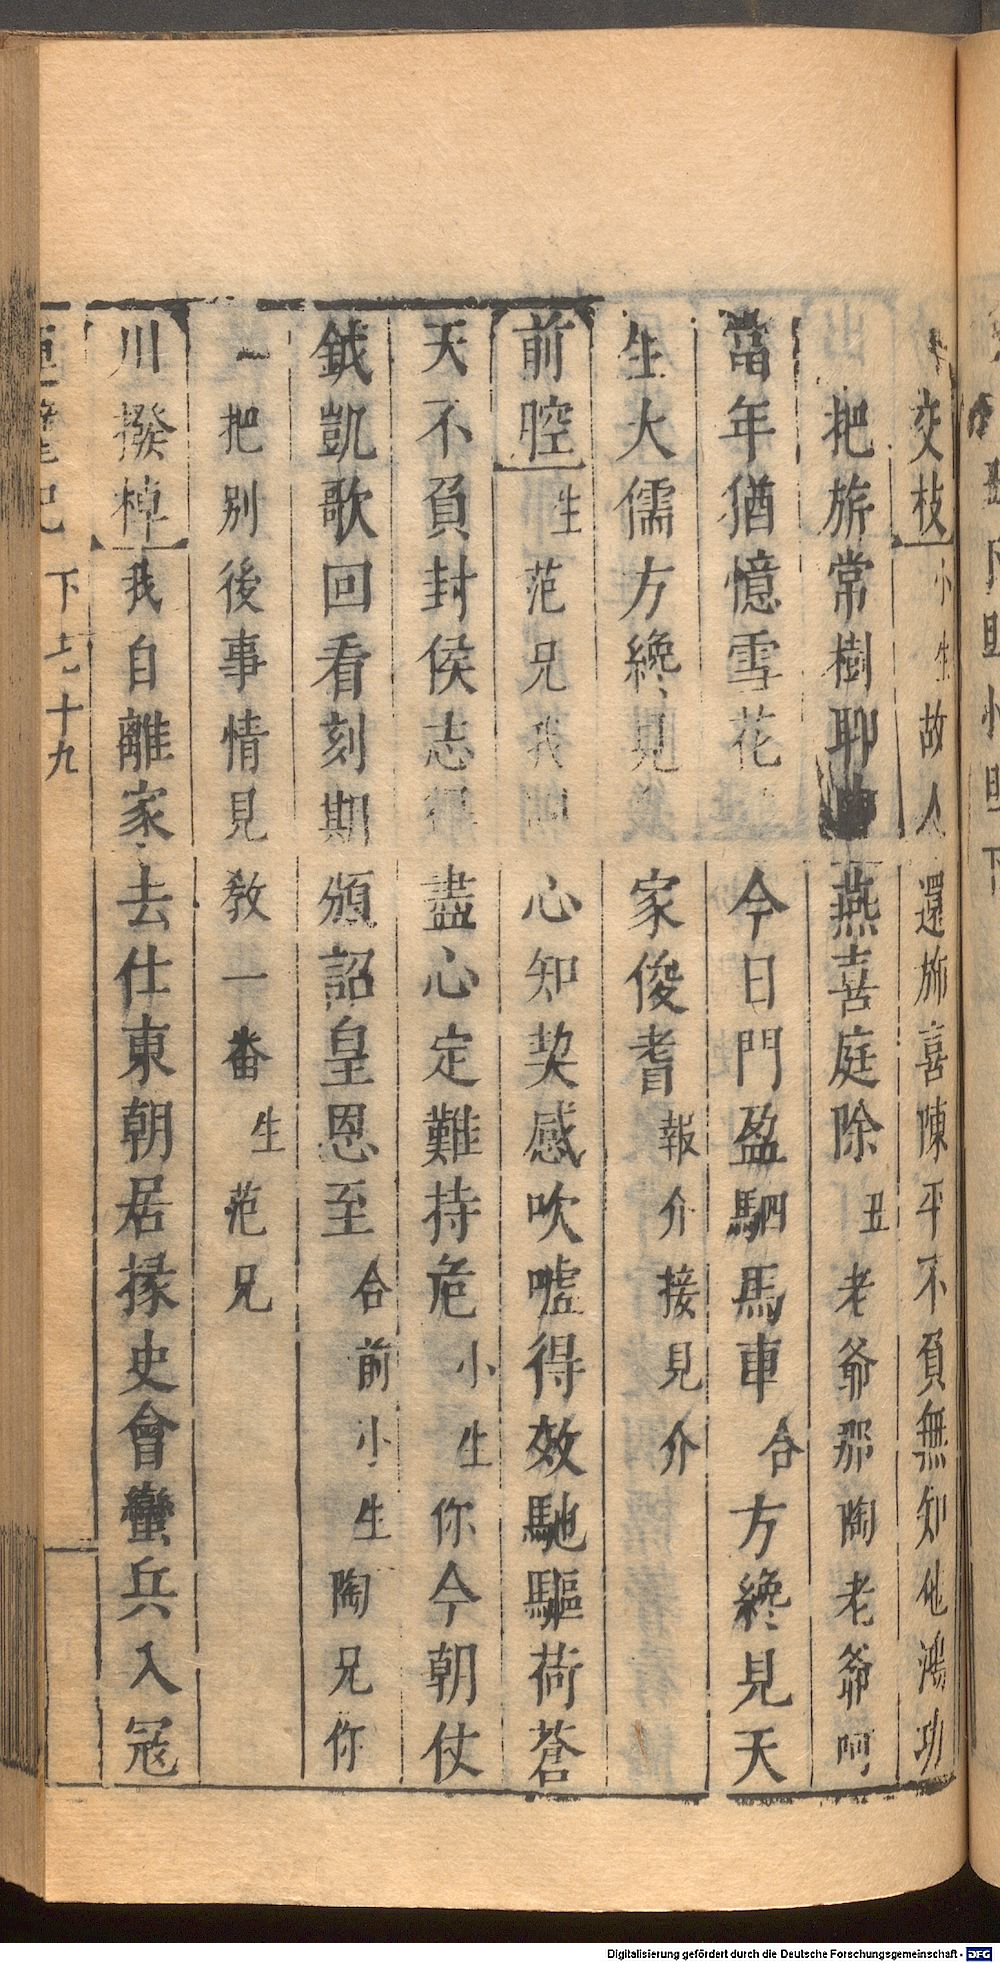 交枝 小生 故人還斾喜陳平不負無知他鴻功
把旂常樹聊 燕喜庭除 丑 老爺那陶老爺阿
當年猶憶雪花 今日門盈駟馬車 合 方纔見天
生大儒方纔見 家俊耆 報介接見介
前腔 生 范兄我 心知契感吹噓得效馳驅荷蒼
天不負封侯志得盡心定難持危 小生 你今朝仗
鉞凱歌回看刻期頒詔皇恩至 合前 小生 陶兄你
一把別後事情見敎一番 生 范兄
川撥棹 我自離家去仕東朝居掾史會蠻兵入冦
記 下 十九
Digitalisierung gefördert durch die Deutsche Forschungsgemeinschaft - DFG